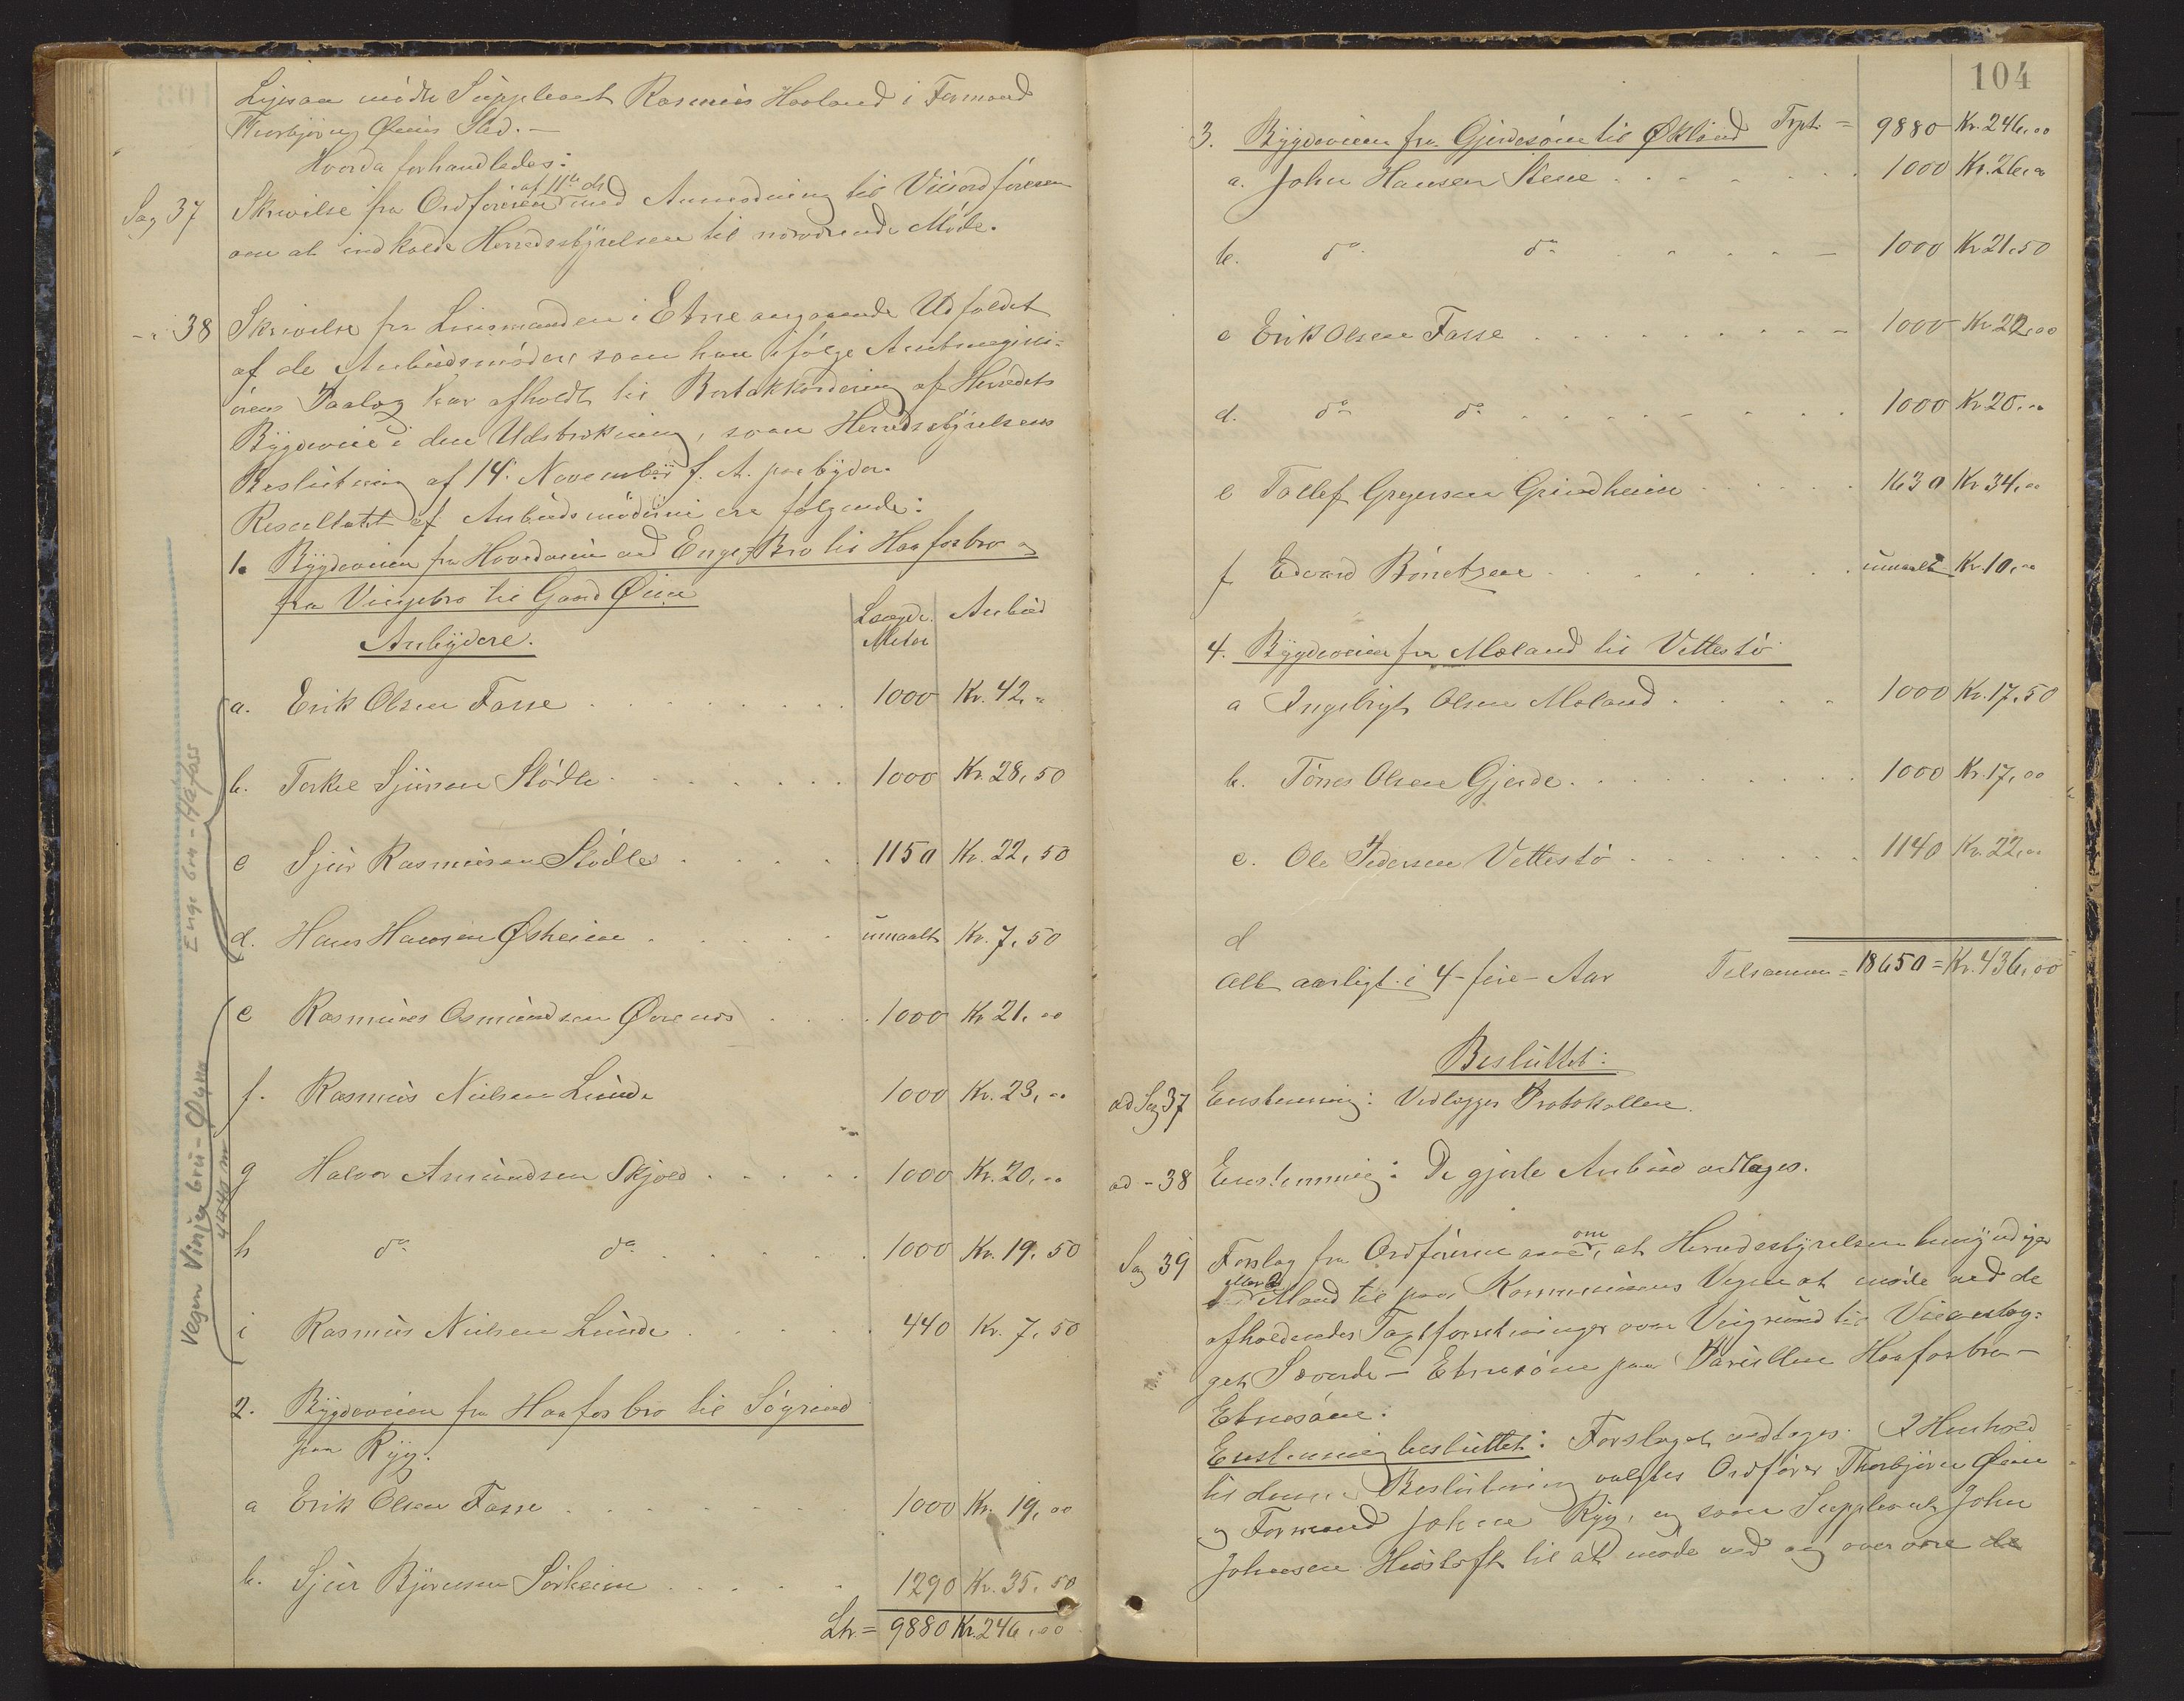 Ligesaa mødte Suppleant Rasmus Haaland i Formand
Thorbjørn Øiens Sted. —
Hvorda forhandledes:
Sag 37 Skrivelse fra Ordføreren af 11te ds med Anmodning til Viceordføreren
om at indkalde Herredsstyrelsen til nærværende Møde.
-"- 38 Skrivelse fra Lensmanden i Etne angaaende Udfaldet
af de Anbudsmøder som han ifølge Amtsingeni-
ørens Paalæg har afholdt til Bortakkordering af Herredets
Bygdeveie i den Udstrækning, som Herredsstyrelsens
Beslutning af 14. November f. A. paabyder.
Resultatet af Anbudsmøderne ere følgende:
1. Bygdeveien fra Hovedveien ved Enge-Bro til Haafosbro og
fra Vinjebro til Gaard Øien
Anbydere. Længde. Meter Anbud
a. Erik Olsen Fasse 1000 Kr. 42,"
b. Torkel Sjursen Stødle 1000 Kr. 28,50
c Sjur Rasmusen Stødle 1150 Kr. 22,50
d. Hans Hansen Øsheim umaalt Kr. 7,50
e Rasmus Osmundsen Ørenes 1000 Kr 21,00
f. Rasmus Nielsen Lunde 1000 Kr. 23,00
g Halvor Amundsen Skjold 1000 Kr. 20,00
h do do 1000 Kr. 19,50
i Rasmus Nielsen Lunde 440 Kr. 7,50
2. Bygdeveien fra Haafosbro til Søgrind
paa Ryg.
a Erik Olsen Fasse 1000 Kr. 19,00
b. Sjur Bjørnsen Sørheim 1290 Kr. 35,50
Ltr. = 9880 Kr. 246,00
Enge bru - Håfoss
Vegen Vinja bru - Øyna
4440 m
104
3. Bygdeveien fra Gjerdesøen til Økland Trpt. = 9880 Kr. 246,00
a. John Hansen Stene 1000 Kr. 26,00
b. do do 1000 Kr 21,50
c Erik Olsen Fasse 1000 Kr 22,00
d. do do 1000 Kr 20,00
e Tollef Gregersen Grindheim 1630 Kr 34,00
f Edvard Børretzen umaalt Kr. 10,00
4. Bygdeveien fra Mæland til Vettestø
a Ingebrigt Olsen Mæland 1000 Kr. 17,50
b. Tørres Olsen Gjerde 1000 Kr. 17,00
c. Ole Pedersen Vettestø 1140 Kr. 22,00
d
Alt aarligt i 4-fire-Aar Tilsammen = 18650 = Kr. 436,00
Besluttet:
ad Sag 37 Enstemmig: Vedlægges Protokollen.
ad - 38 Enstemmig: De gjorte Anbud vedtages.
Sag 39 Forslag fra Ordføreren om, at Herredsstyrelsen bemyndiger
1 eller 2 Mand til paa Kommunens Vegne at møde ved de
afholdendes Taxtforretninger over Veigrund til Veianlæg-
get Sævareid - Etnesøen paa Parsellen Haafosbro -
Etnesøen.
Enstemmig besluttet: Forslaget vedtages. I Henhold
til denne Beslutning valgtes Ordfører Thorbjørn Øien
og Formand Johne Ryg, og som Suppleant John
Johnsen Husloft til at møde ved og overvære de